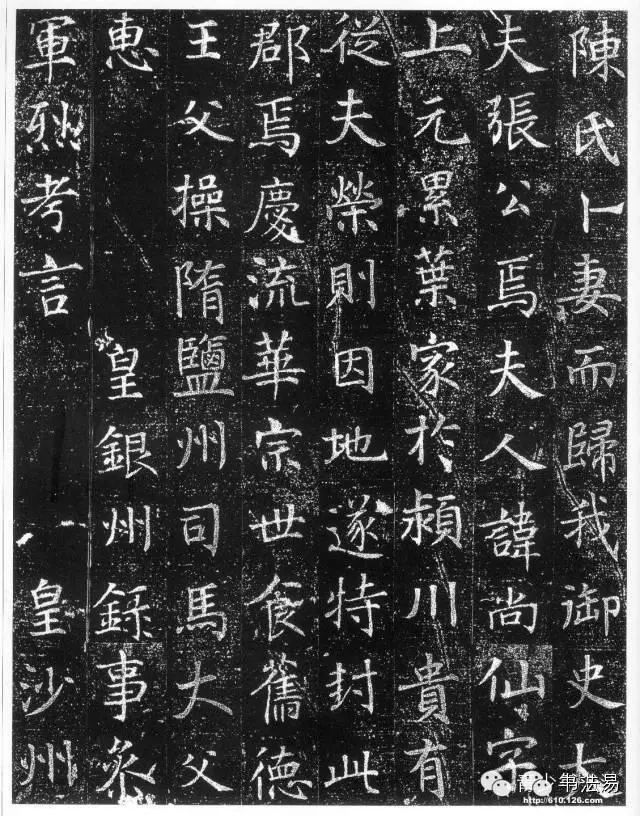 陳氏卜妻而歸我御史大
夫張公焉夫人諱尚仙字
上元累葉家於潁川貴有
從夫榮則因地遂特封此
郡焉慶流華宗世食舊德
王父操隋鹽州司馬大父
惠 皇銀州錄事叅
軍烈考言 皇沙州
青少年书法易
http://610.126.com